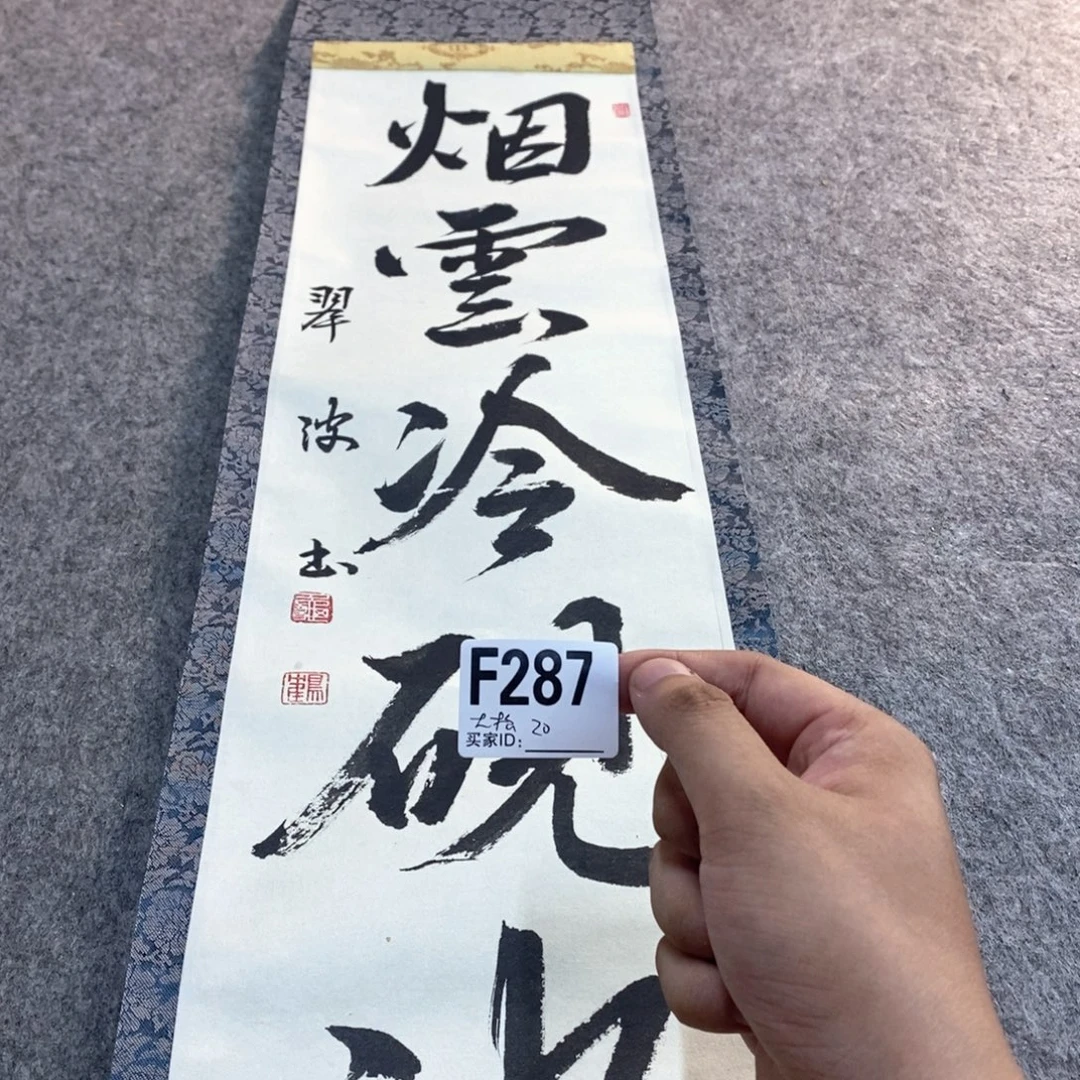 烟雲冷硯
翠波書
F287
20
买家ID: